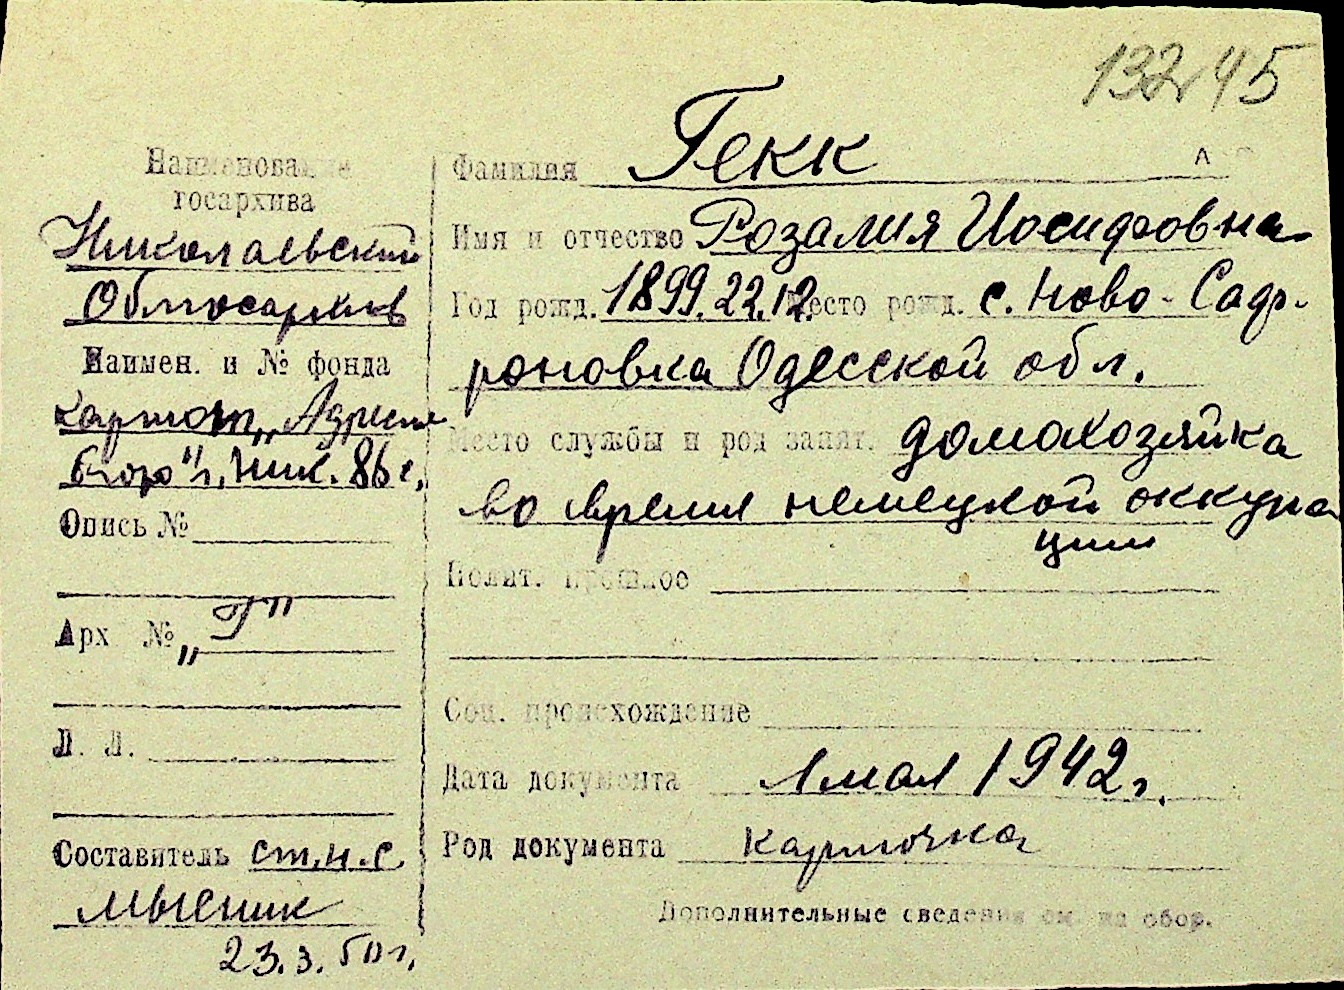 132 45
Наименование
госархива
Николаевский
Облгосархив
Наимен. и № фонда
картот. „Адресн.
бюро" г. Ник. 86 г.
Опись №
Арх № „Г"
Л. Л.
Составитель ст.н.с.
Мысник
23.3.50 г.
Фамилия Гекк
Имя и отчество Розалия Иосифовна
Год рожд. 1899.22.12. Место рожд. с. Ново-Сафр-
роновка Одесской обл.
Место службы и род занят. домохозяйка
во время немецкой оккупа
ции
Полит. прошлое
Соц. происхождение
Дата документа 1 мая 1942 г.
Род документа карточка
Дополнительные сведения см. на обор.